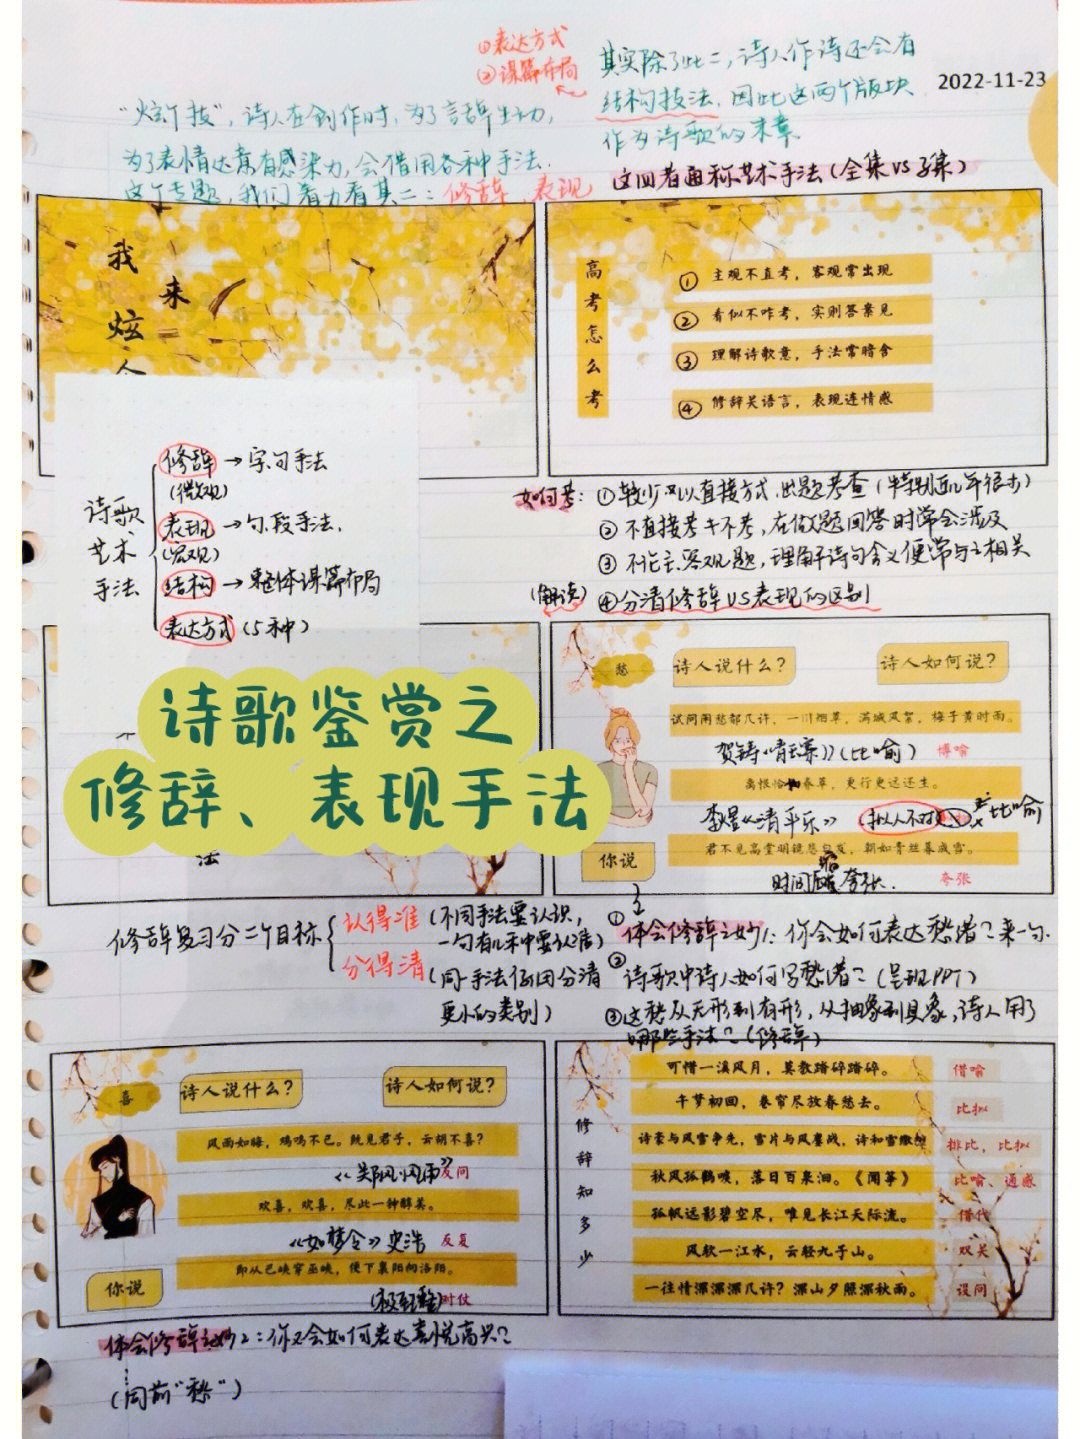 ①表达方式
②谋篇布局
其实除了此二,诗人作诗还会有
结构技法,因此这两个版块
作为诗歌的末章.
2022-11-23
"炫技",诗人在创作时,为了言辞生动,
为了表情达意有感染力,会借用各种手法.
这个专题,我们着力看其二:修辞、表现
这四者通称艺术手法(全集VS子集)
我来炫
高考怎么考
① 主观不直考,客观常出现
② 看似不咋考,实则答案见
③ 理解诗歌意,手法常暗含
④ 修辞关语言,表现连情感
诗歌艺术手法
修辞→字句手法
(微观)
表现→句段手法、
(宏观)
结构→整体谋篇布局
表达方式(5种)
如何考:①较少以直接方式出题考查(特别近几年很少)
②不直接考≠不考,在做题回答时常会涉及
③不论主客观题,理解诗句含义便常与之相关
(解读)④分清修辞VS表现的区别
诗歌鉴赏之
修辞、表现手法
法
愁
诗人说什么?
诗人如何说?
试问闲愁都几许,一川烟草,满城风絮,梅子黄时雨。
贺铸《青玉案》(比喻) 博喻
离恨恰如春草,更行更远还生。
李煜《清平乐》(拟人不对) 比喻
君不见高堂明镜悲白发,朝如青丝暮成雪。
时间 夸张. 夸张
你说
修辞复习分二个目标
认得准(不同手法要认识,
一句有几种要认准)
分得清(同一手法仍因分清
更小的类别)
①体会修辞之妙1:你会如何表达愁绪?来一句.
②诗歌中诗人如何写愁绪?(呈现PPT)
③这愁从无形到有形,从抽象到具象,诗人用了
哪些手法?(修辞)
喜
诗人说什么?
诗人如何说?
风雨如晦,鸡鸣不已。既见君子,云胡不喜?
《郑风·风雨》反问
欢喜,欢喜,尽此一种醉美。
《如梦令》史浩 反复
即从巴峡穿巫峡,便下襄阳向洛阳。
对仗
你说
修辞知多少
可惜一溪风月,莫教踏碎琼瑶。 借喻
午梦初回,卷帘尽放春愁去。 比拟
诗豪与风雪争先,雪片与风鏖战,诗和雪缴 排比,比拟
秋风孤鹤唳,落日百泉洄。《闻筝》 比喻、通感
孤帆远影碧空尽,唯见长江天际流。 借代
风软一江水,云轻九子山。 双关
一往情深深几许?深山夕照深秋雨。 设问
体会修辞之妙2:你又会如何表达喜悦高兴?
(同前"愁")